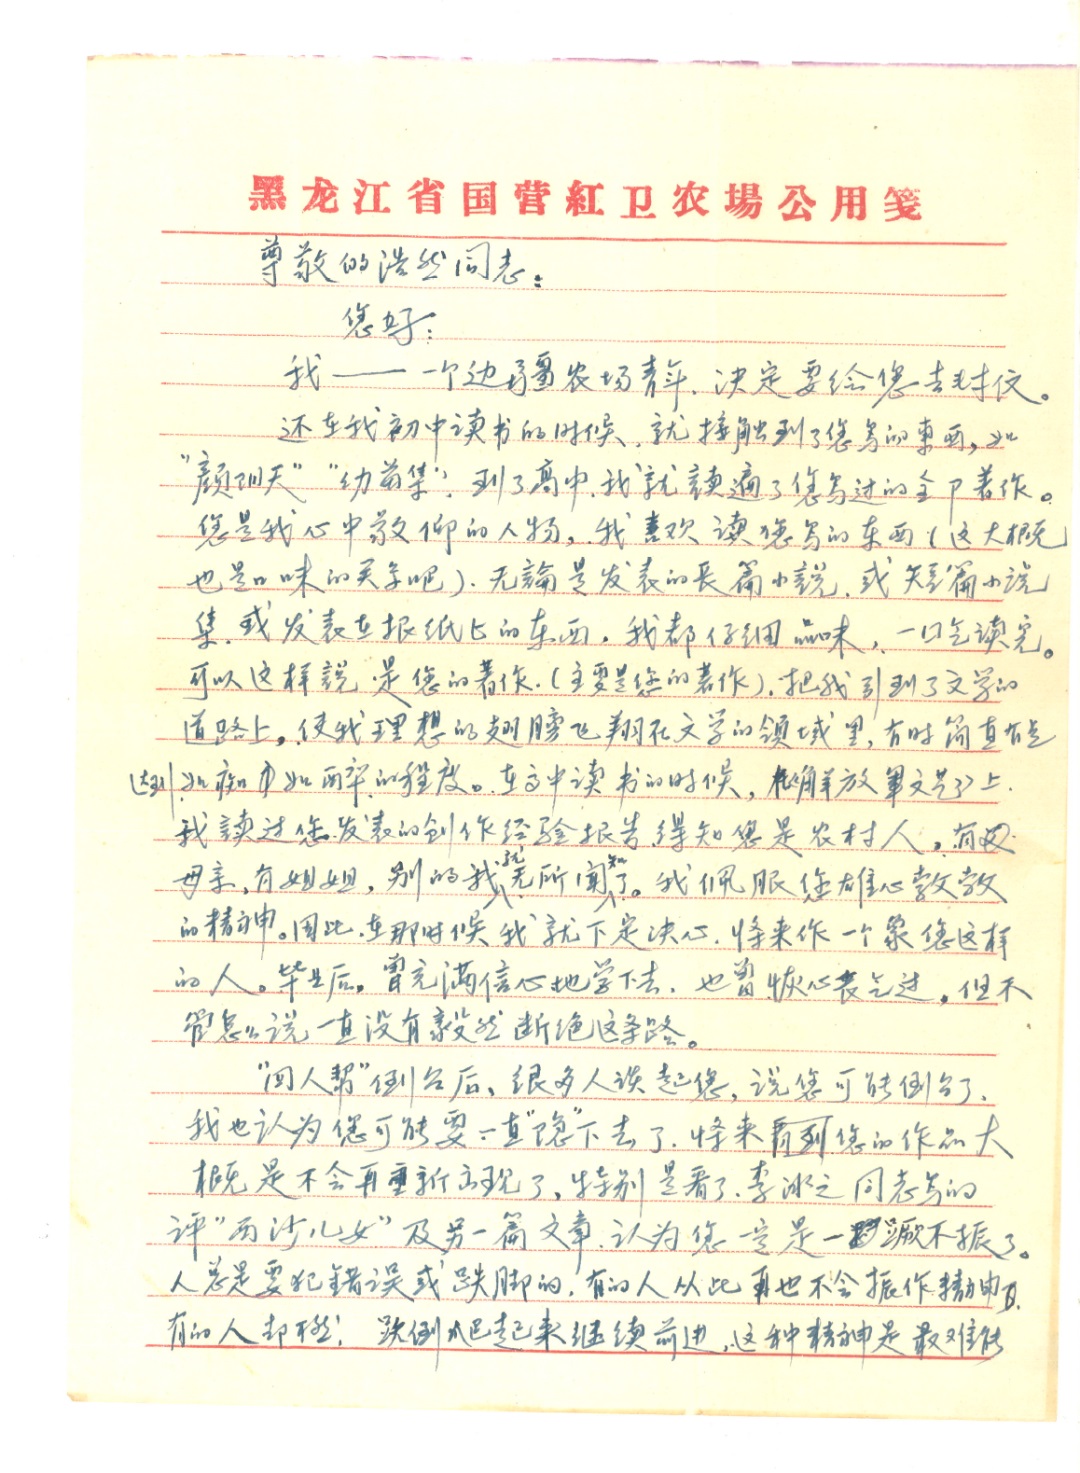 黑龙江省国营紅卫农場公用箋
尊敬的浩然同志：
您好：
我——一个边疆农场青年，决定要给您去封信。
还在我初中读书的时候，就接触到了您写的東西，如
“艳阳天”“幼苗集”，到了高中，我就讀遍了您写过的全卩著作。
您是我心中敬仰的人物，我喜欢读您写的东西（这大概
也是口味的关系吧），无論是发表的長篇小說，或短篇小说
集，或发表在报纸上的东西，我都仔细品味，一口气读完。
可以这样説，是您的著作，（主要是您的著作），把我引到了文学的
道路上，使我理想的翅膀飞翔在文学的领域里，有时简直有点
达到如痴如醉的程度。在高中读书的时候，在解放軍文艺上，
我讀过您发表的创作经验报告，得知您是农村人，有
母亲，有姐姐，别的我就无所闻知了。我佩服您雄心勃勃
的精神。因此，在那时候我就下定决心，将来作一个象您这样
的人。毕业后，曾充满信心地学下去，也曾灰心丧气过，但不
管怎么说一直没有毅然断绝这条路。
“四人帮”倒台后，很多人谈起您，说您可能倒台了，
我也认为您可能要一直“隐”下去了，将来看到您的作品大
概是不会再重新出现了，特别是看了，李冰之同志写的
评“西沙儿女”及另一篇文章，认为您一定是一蹶不振了。
人总是要犯错误或跌脚的，有的人从此再也不会振作精神，
有的人却不然，跌倒爬起来继续前进，这种精神是最难能